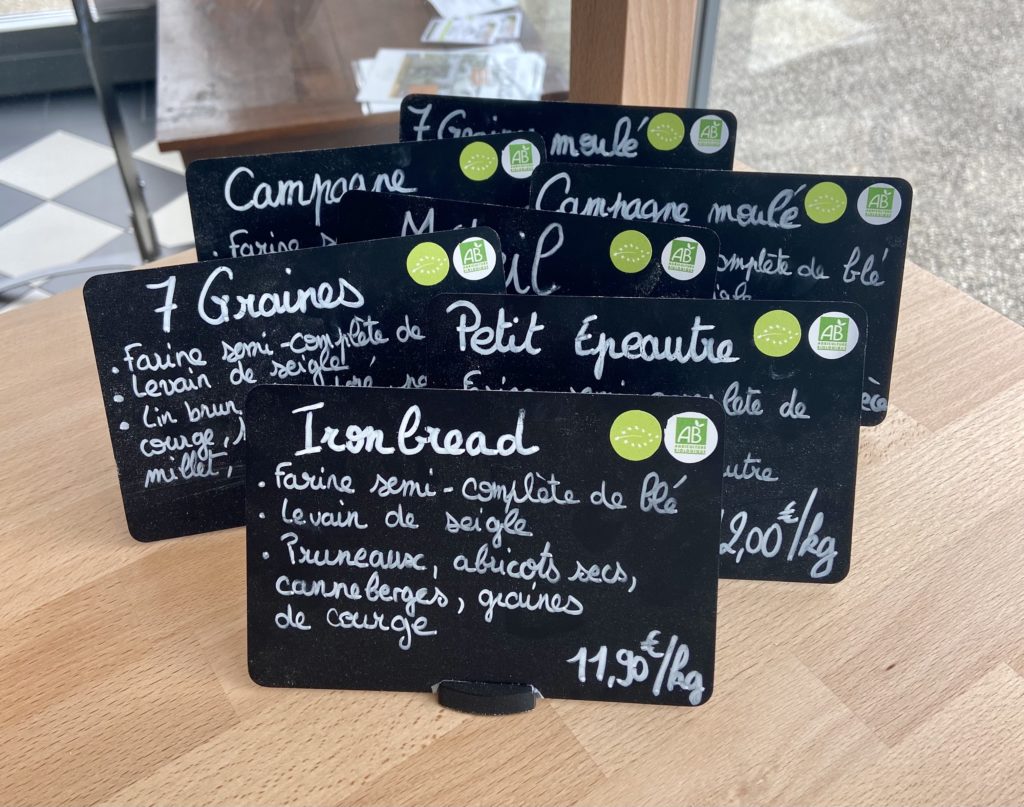 7 Graines moulé
AB
Campagne
AB
Farine
Campagne moulé
AB
complète de blé
seigle
AB
7 Graines
AB
• Farine semi-complète de
• Levain de seigle
• Lin brun
courge,
millet,
Petit Épeautre
AB
AGRICULTURE
BIOLOGIQUE
Farine semi complete de
2,00€/kg
Ironbread
AB
AGRICULTURE
BIOLOGIQUE
• Farine semi-complète de blé
• Levain de seigle
• Pruneaux, abricots secs,
canneberges, graines
de courge
11,90€/kg